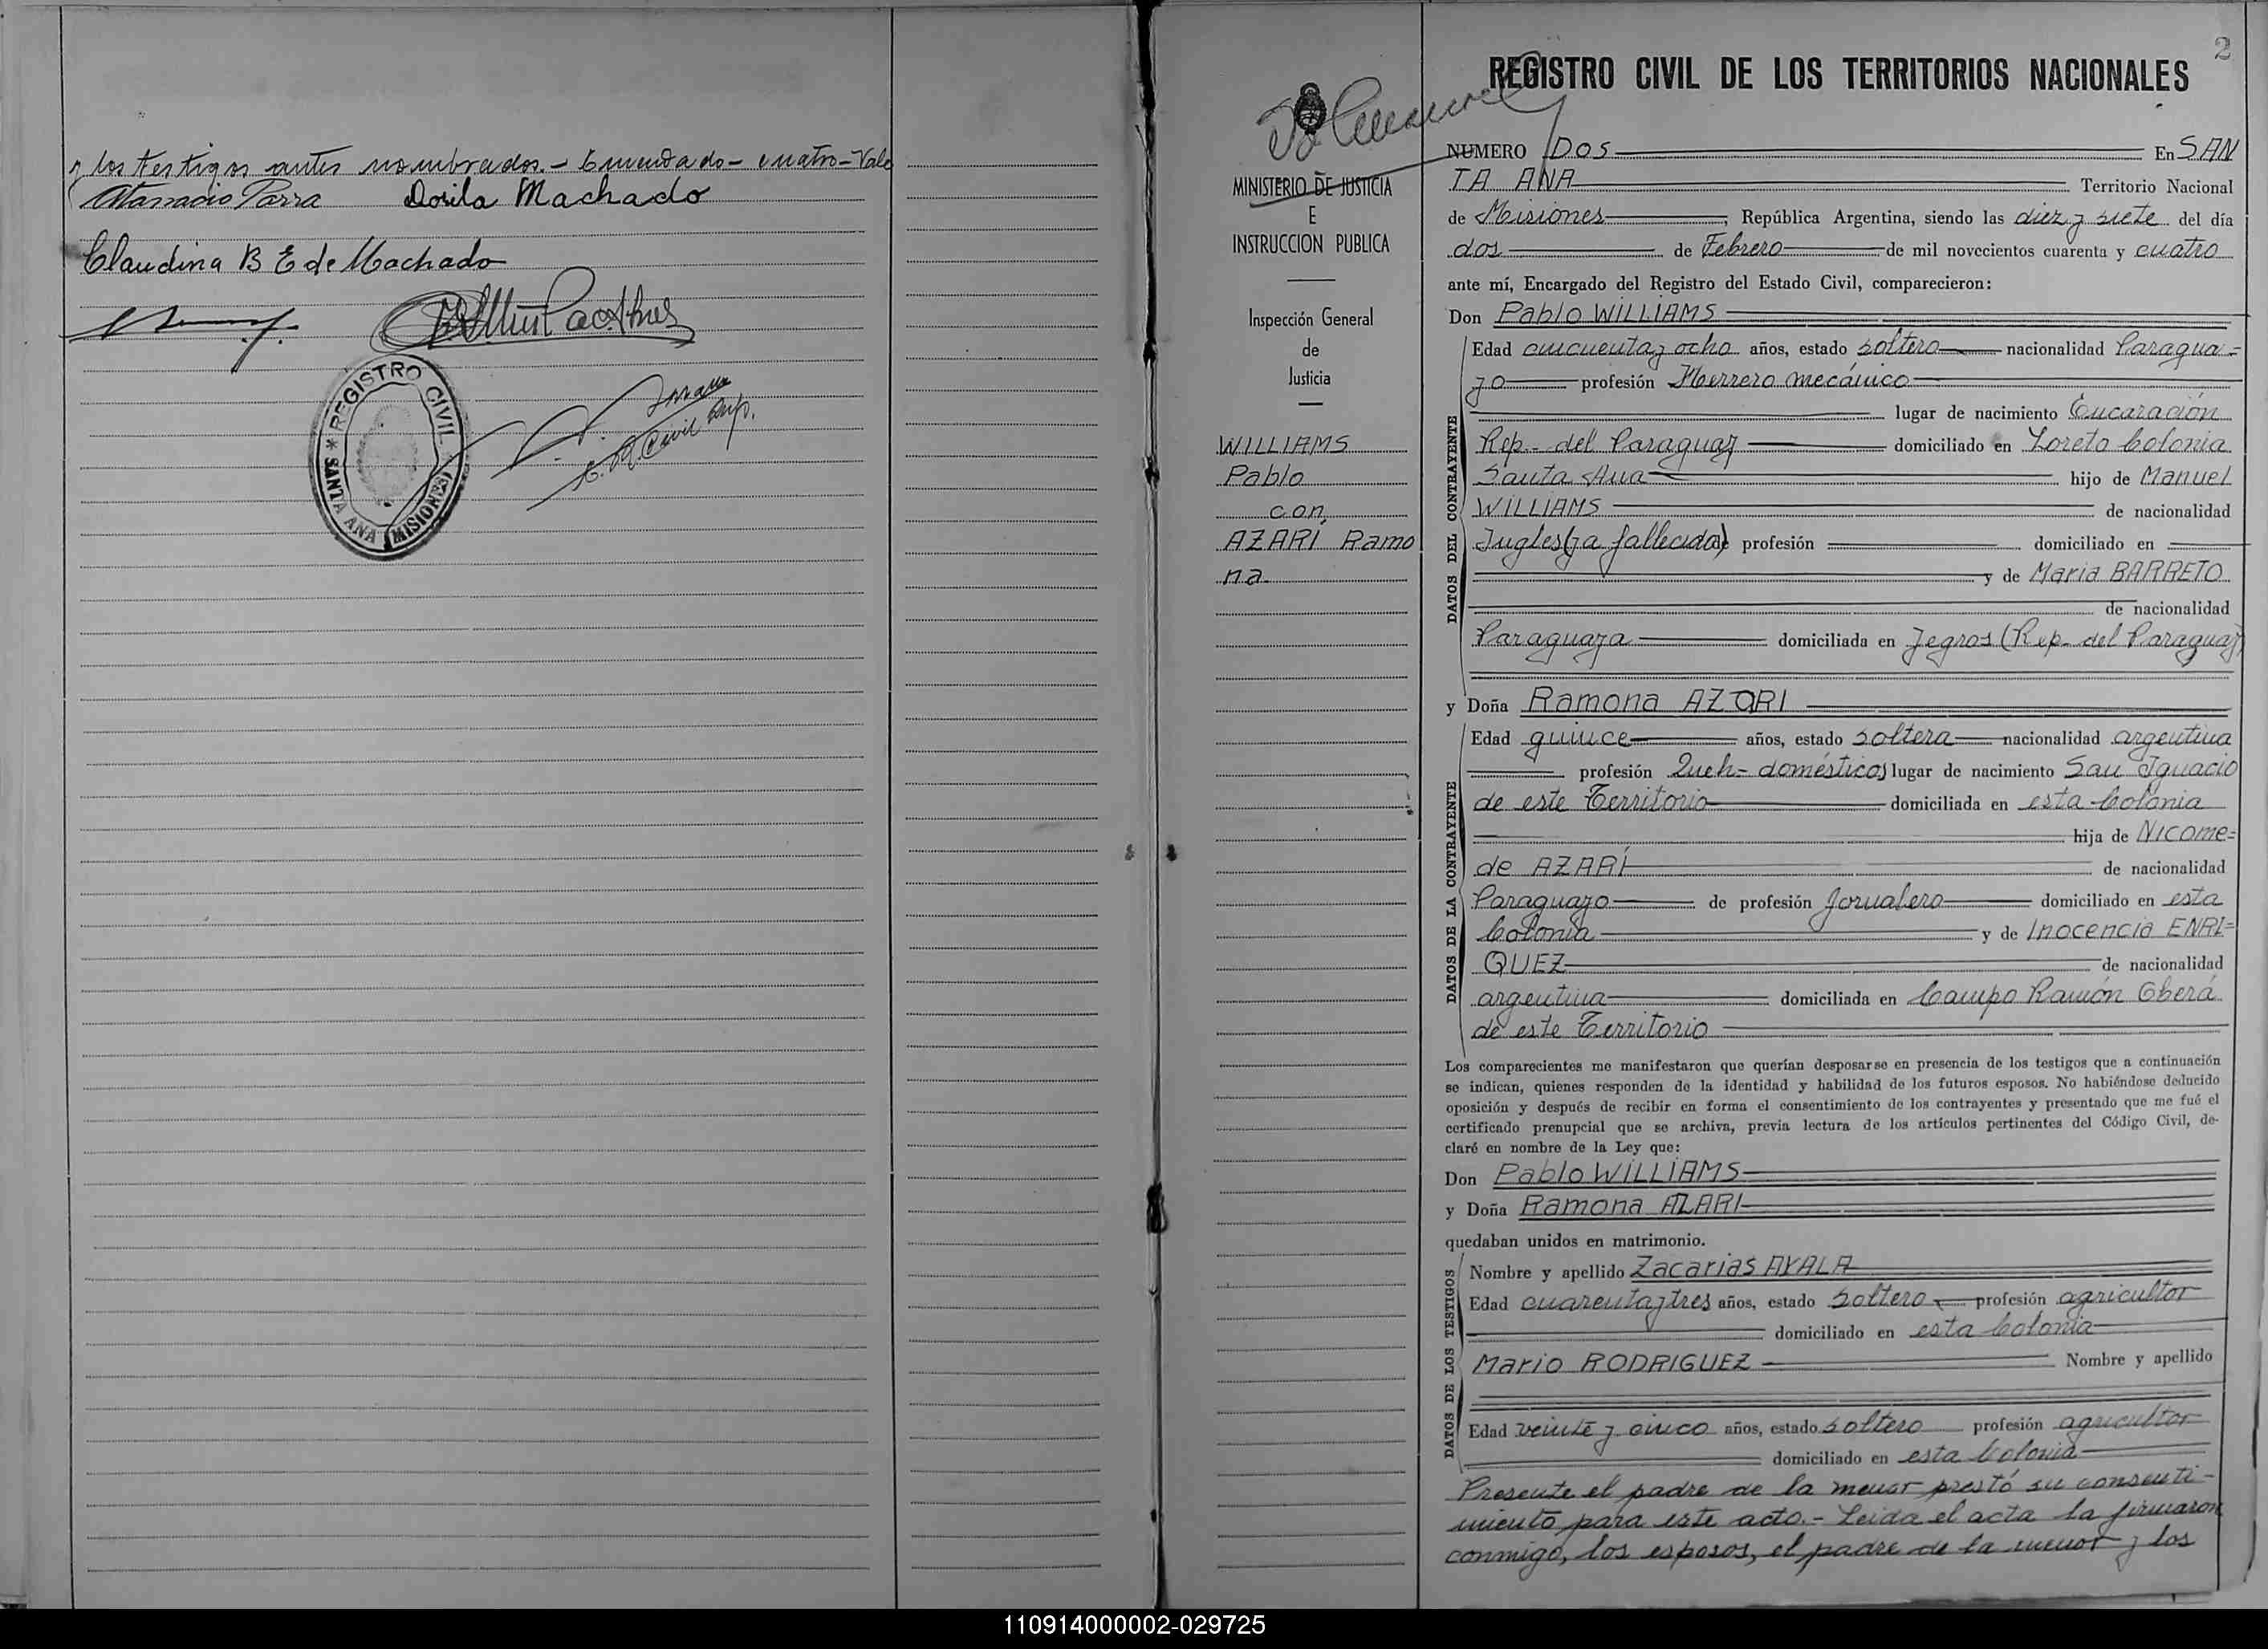 y los testigos antes nombrados.- Enmendado- cuatro-Vale
Atanacio Parra Dorila Machado
Claudina B E de Machado
* REGISTRO CIVIL *
SANTA ANA (MISIONES)
2
REGISTRO CIVIL DE LOS TERRITORIOS NACIONALES
MINISTERIO DE JUSTICIA
E
INSTRUCCION PUBLICA
Inspección General
de
Justicia
WILLIAMS
Pablo
con
AZARÍ Ramo
na
NUMERO DOS En SAN
TA ANA Territorio Nacional
de Misiones, República Argentina, siendo las diez y siete del día
dos de Febrero de mil novecientos cuarenta y cuatro
ante mí, Encargado del Registro del Estado Civil, comparecieron:
Don Pablo WILLIAMS
DATOS DEL CONTRAYENTE
Edad cincuenta y ocho años, estado soltero nacionalidad Paragua=
yo profesión Herrero mecánico
lugar de nacimiento Encaración
Rep.- del Paraguay domiciliado en Loreto Colonia
Santa Ana hijo de Manuel
WILLIAMS de nacionalidad
Ingles (ya fallecido) de profesión domiciliado en
y de Maria BARRETO
de nacionalidad
Paraguaya domiciliada en Yegros (Rep.- del Paraguay)
y Doña Ramona AZARI
DATOS DE LA CONTRAYENTE
Edad quince años, estado soltera nacionalidad argentina
profesión Queh- domésticos lugar de nacimiento San Ignacio
de este Territorio domiciliada en esta Colonia
hija de Nicome=
de AZARÍ de nacionalidad
Paraguayo de profesión Jornalero domiciliado en esta
Colonia y de Inocencia ENRI=
QUEZ de nacionalidad
argentina domiciliada en Campo Ramón Oberá
de este Territorio
Los comparecientes me manifestaron que querían desposarse en presencia de los testigos que a continuación
se indican, quienes responden de la identidad y habilidad de los futuros esposos. No habiéndose deducido
oposición y después de recibir en forma el consentimiento de los contrayentes y presentado que me fué el
certificado prenupcial que se archiva, previa lectura de los artículos pertinentes del Código Civil, de-
claré en nombre de la Ley que:
Don Pablo WILLIAMS
y Doña Ramona AZARI
quedaban unidos en matrimonio.
DATOS DE LOS TESTIGOS
Nombre y apellido Zacarias AYALA
Edad cuarenta y tres años, estado soltero profesión agricultor
domiciliado en esta Colonia
Mario RODRIGUEZ Nombre y apellido
Edad veinte y cinco años, estado soltero profesión agricultor
domiciliado en esta Colonia
Presente el padre de la menor prestó su consenti-
miento para este acto.- Leida el acta la firmaron
conmigo, los esposos, el padre de la menor y los
110914000002-029725